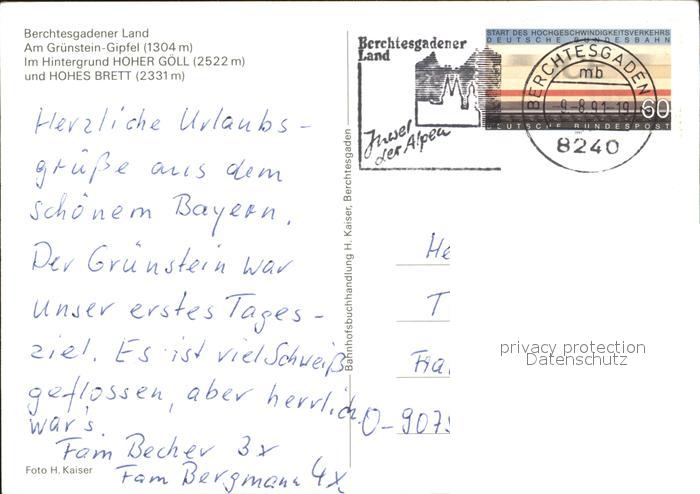 Berchtesgadener Land
Am Grünstein-Gipfel (1304 m)
Im Hintergrund HOHER GÖLL (2522 m)
und HOHES BRETT (2331 m)
Herzliche Urlaubs-
grüße aus dem
schönem Bayern.
Der Grünstein war
unser erstes Tages-
ziel. Es ist viel Schweiß
geflossen, aber herrlich
war's.
Fam Becher 3x
Fam Bergmann 4x
Foto H. Kaiser
Bahnhofsbuchhandlung H. Kaiser, Berchtesgaden
Berchtesgadener
Land
Insel
der Alpen
START DES HOCHGESCHWINDIGKEITSVERKEHRS
DEUTSCHE BUNDESBAHN
60
DEUTSCHE BUNDESPOST
BERCHTESGADEN
mb
-9.-8.91-19
8240
He
T
Fra
O-9075
privacy protection
Datenschutz